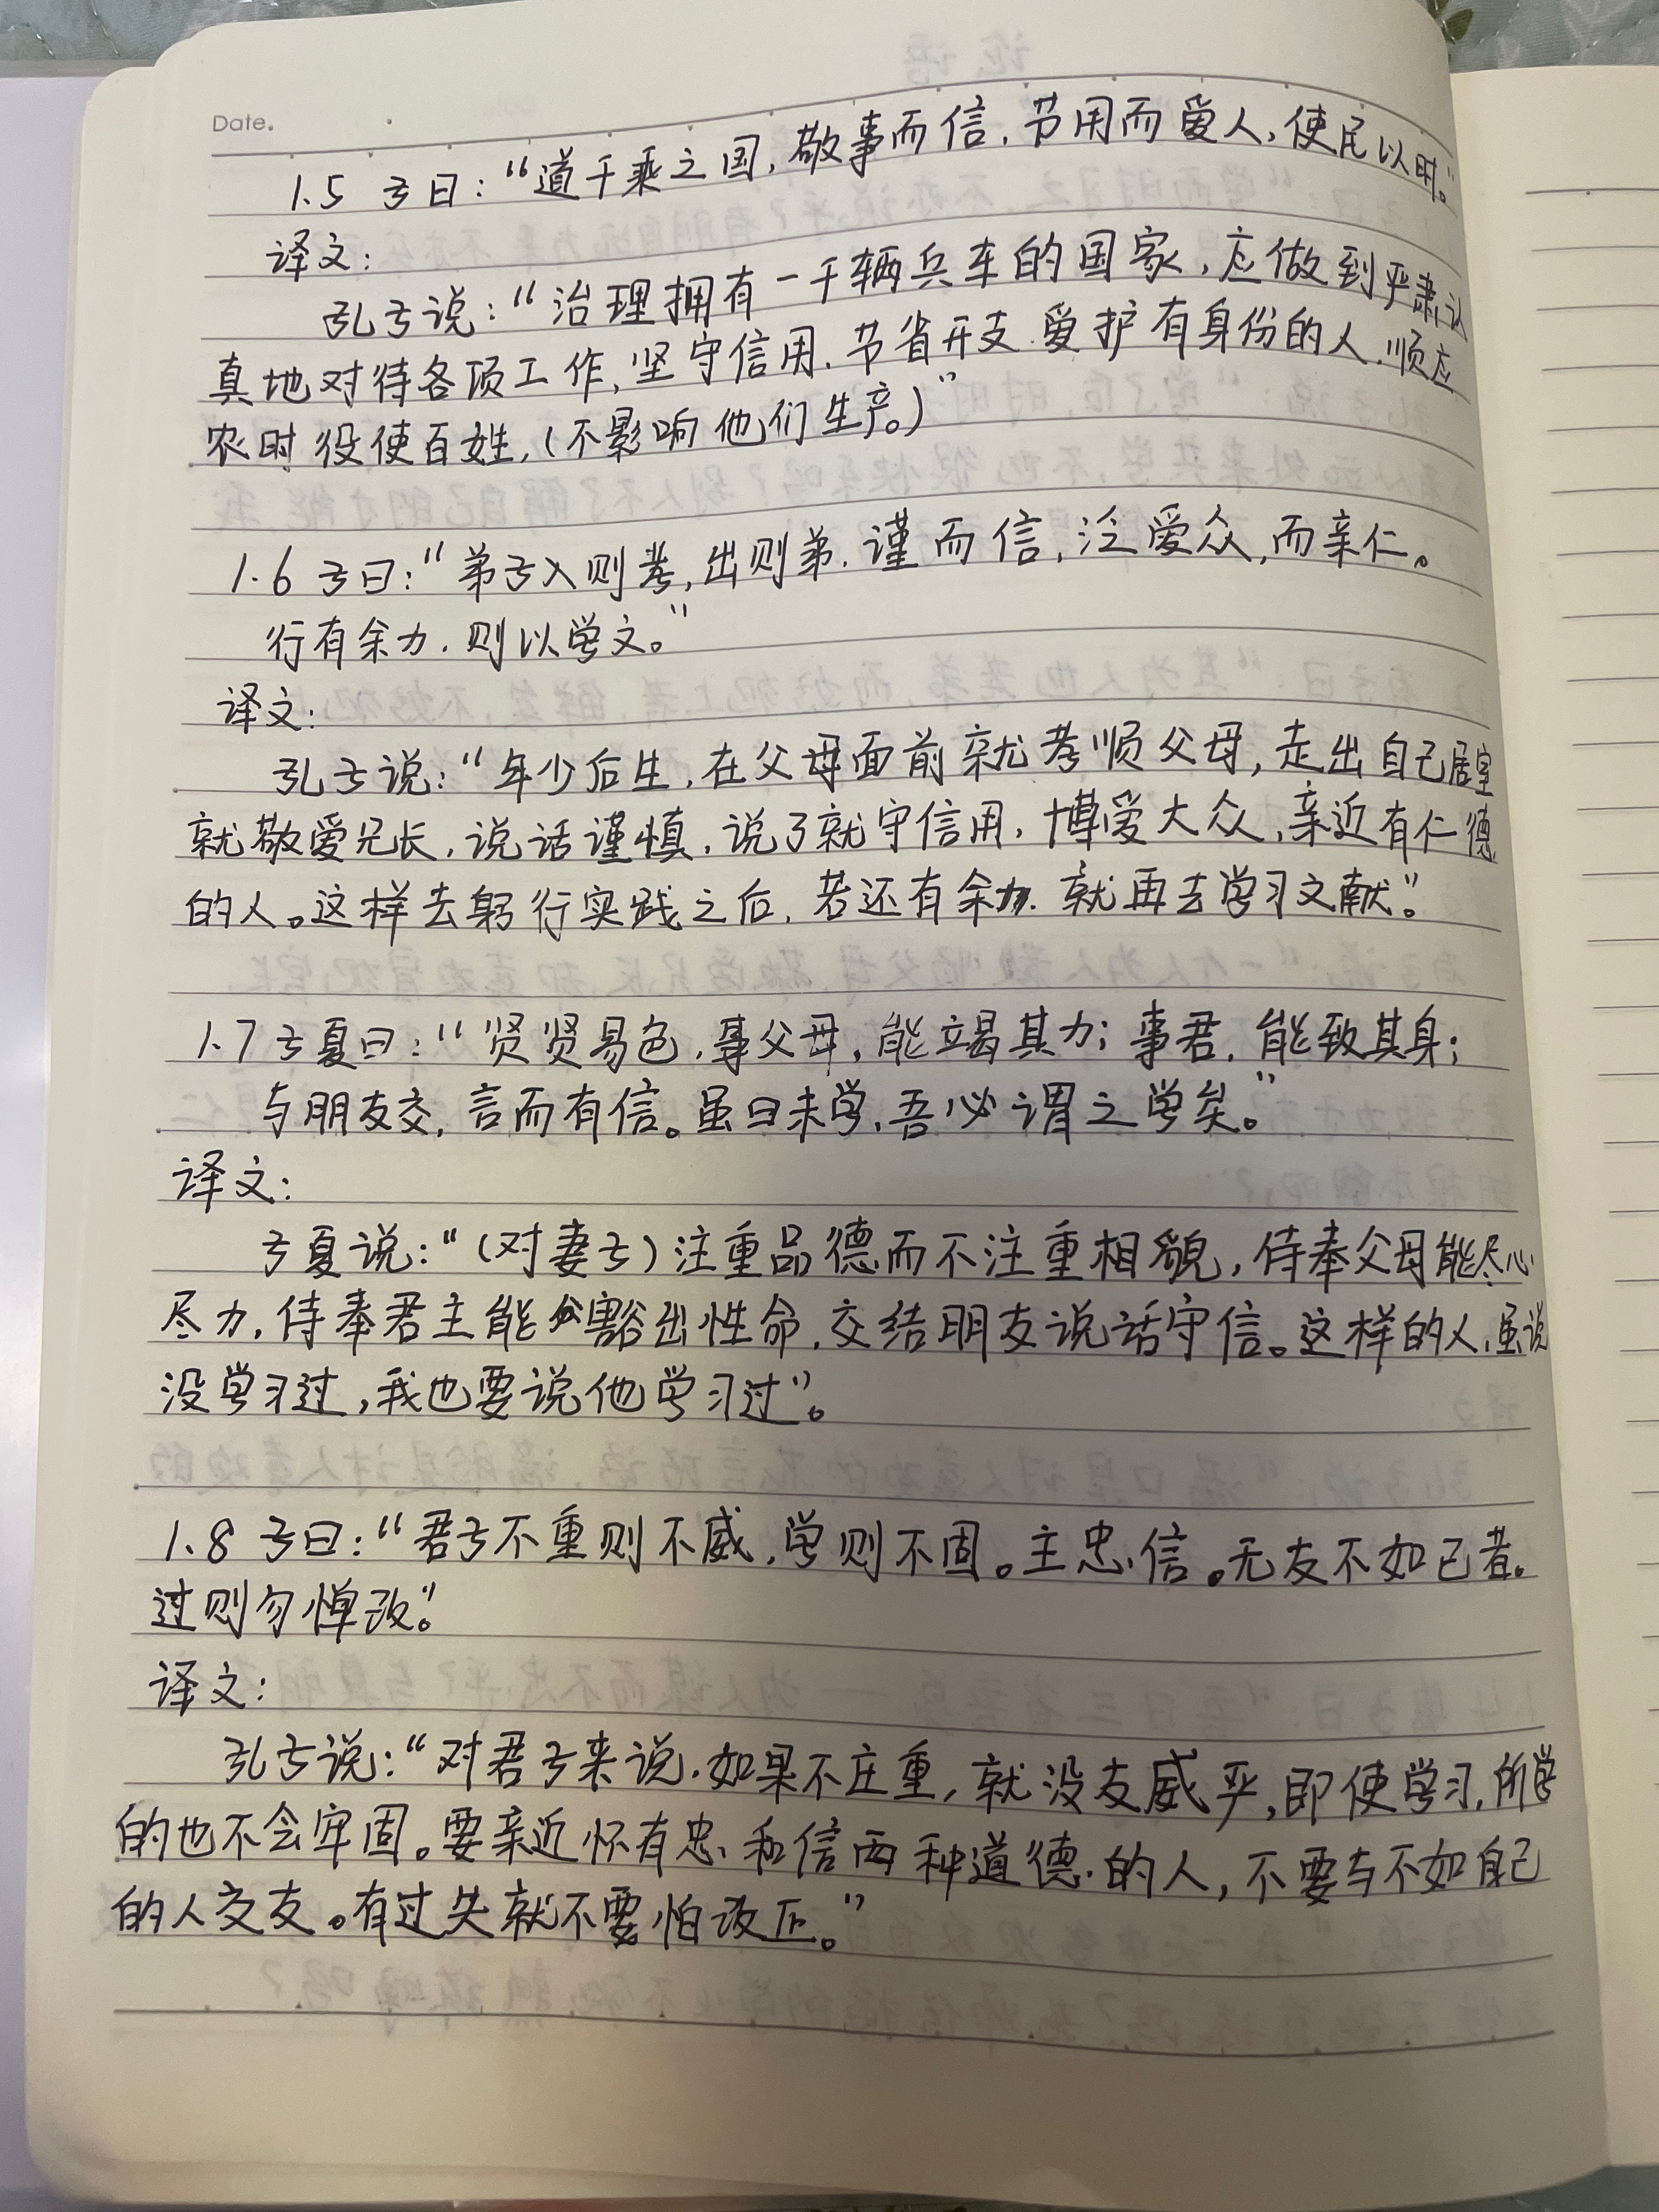 Date.
1.5 子曰："道千乘之国,敬事而信.节用而爱人,使民以时。"
译文:
孔子说："治理拥有一千辆兵车的国家,应做到严肃认
真地对待各项工作,坚守信用.节省开支.爱护有身份的人.顺应
农时役使百姓,(不影响他们生产。)"
1.6 子曰："弟子入则孝,出则弟.谨而信,泛爱众,而亲仁。
行有余力.则以学文。"
译文:
孔子说："年少后生,在父母面前就孝顺父母,走出自己居室
就敬爱兄长,说话谨慎,说了就守信用,博爱大众,亲近有仁德
的人。这样去躬行实践之后,若还有余力.就再去学习文献"。
1.7 子夏曰："贤贤易色,事父母,能竭其力;事君,能致其身;
与朋友交,言而有信。虽曰未学,吾必谓之学矣。"
译文:
子夏说："(对妻子)注重品德而不注重相貌,侍奉父母能尽心
尽力,侍奉君主能豁出性命,交结朋友说话守信。这样的人,虽说
没学习过,我也要说他学习过"。
1.8 子曰："君子不重则不威,学则不固。主忠信。无友不如己者。
过则勿惮改"。
译文:
孔子说："对君子来说.如果不庄重,就没友威严,即使学习,所学
的也不会牢固。要亲近怀有忠和信两种道德的人,不要与不如自己
的人交友。有过失就不要怕改正。"